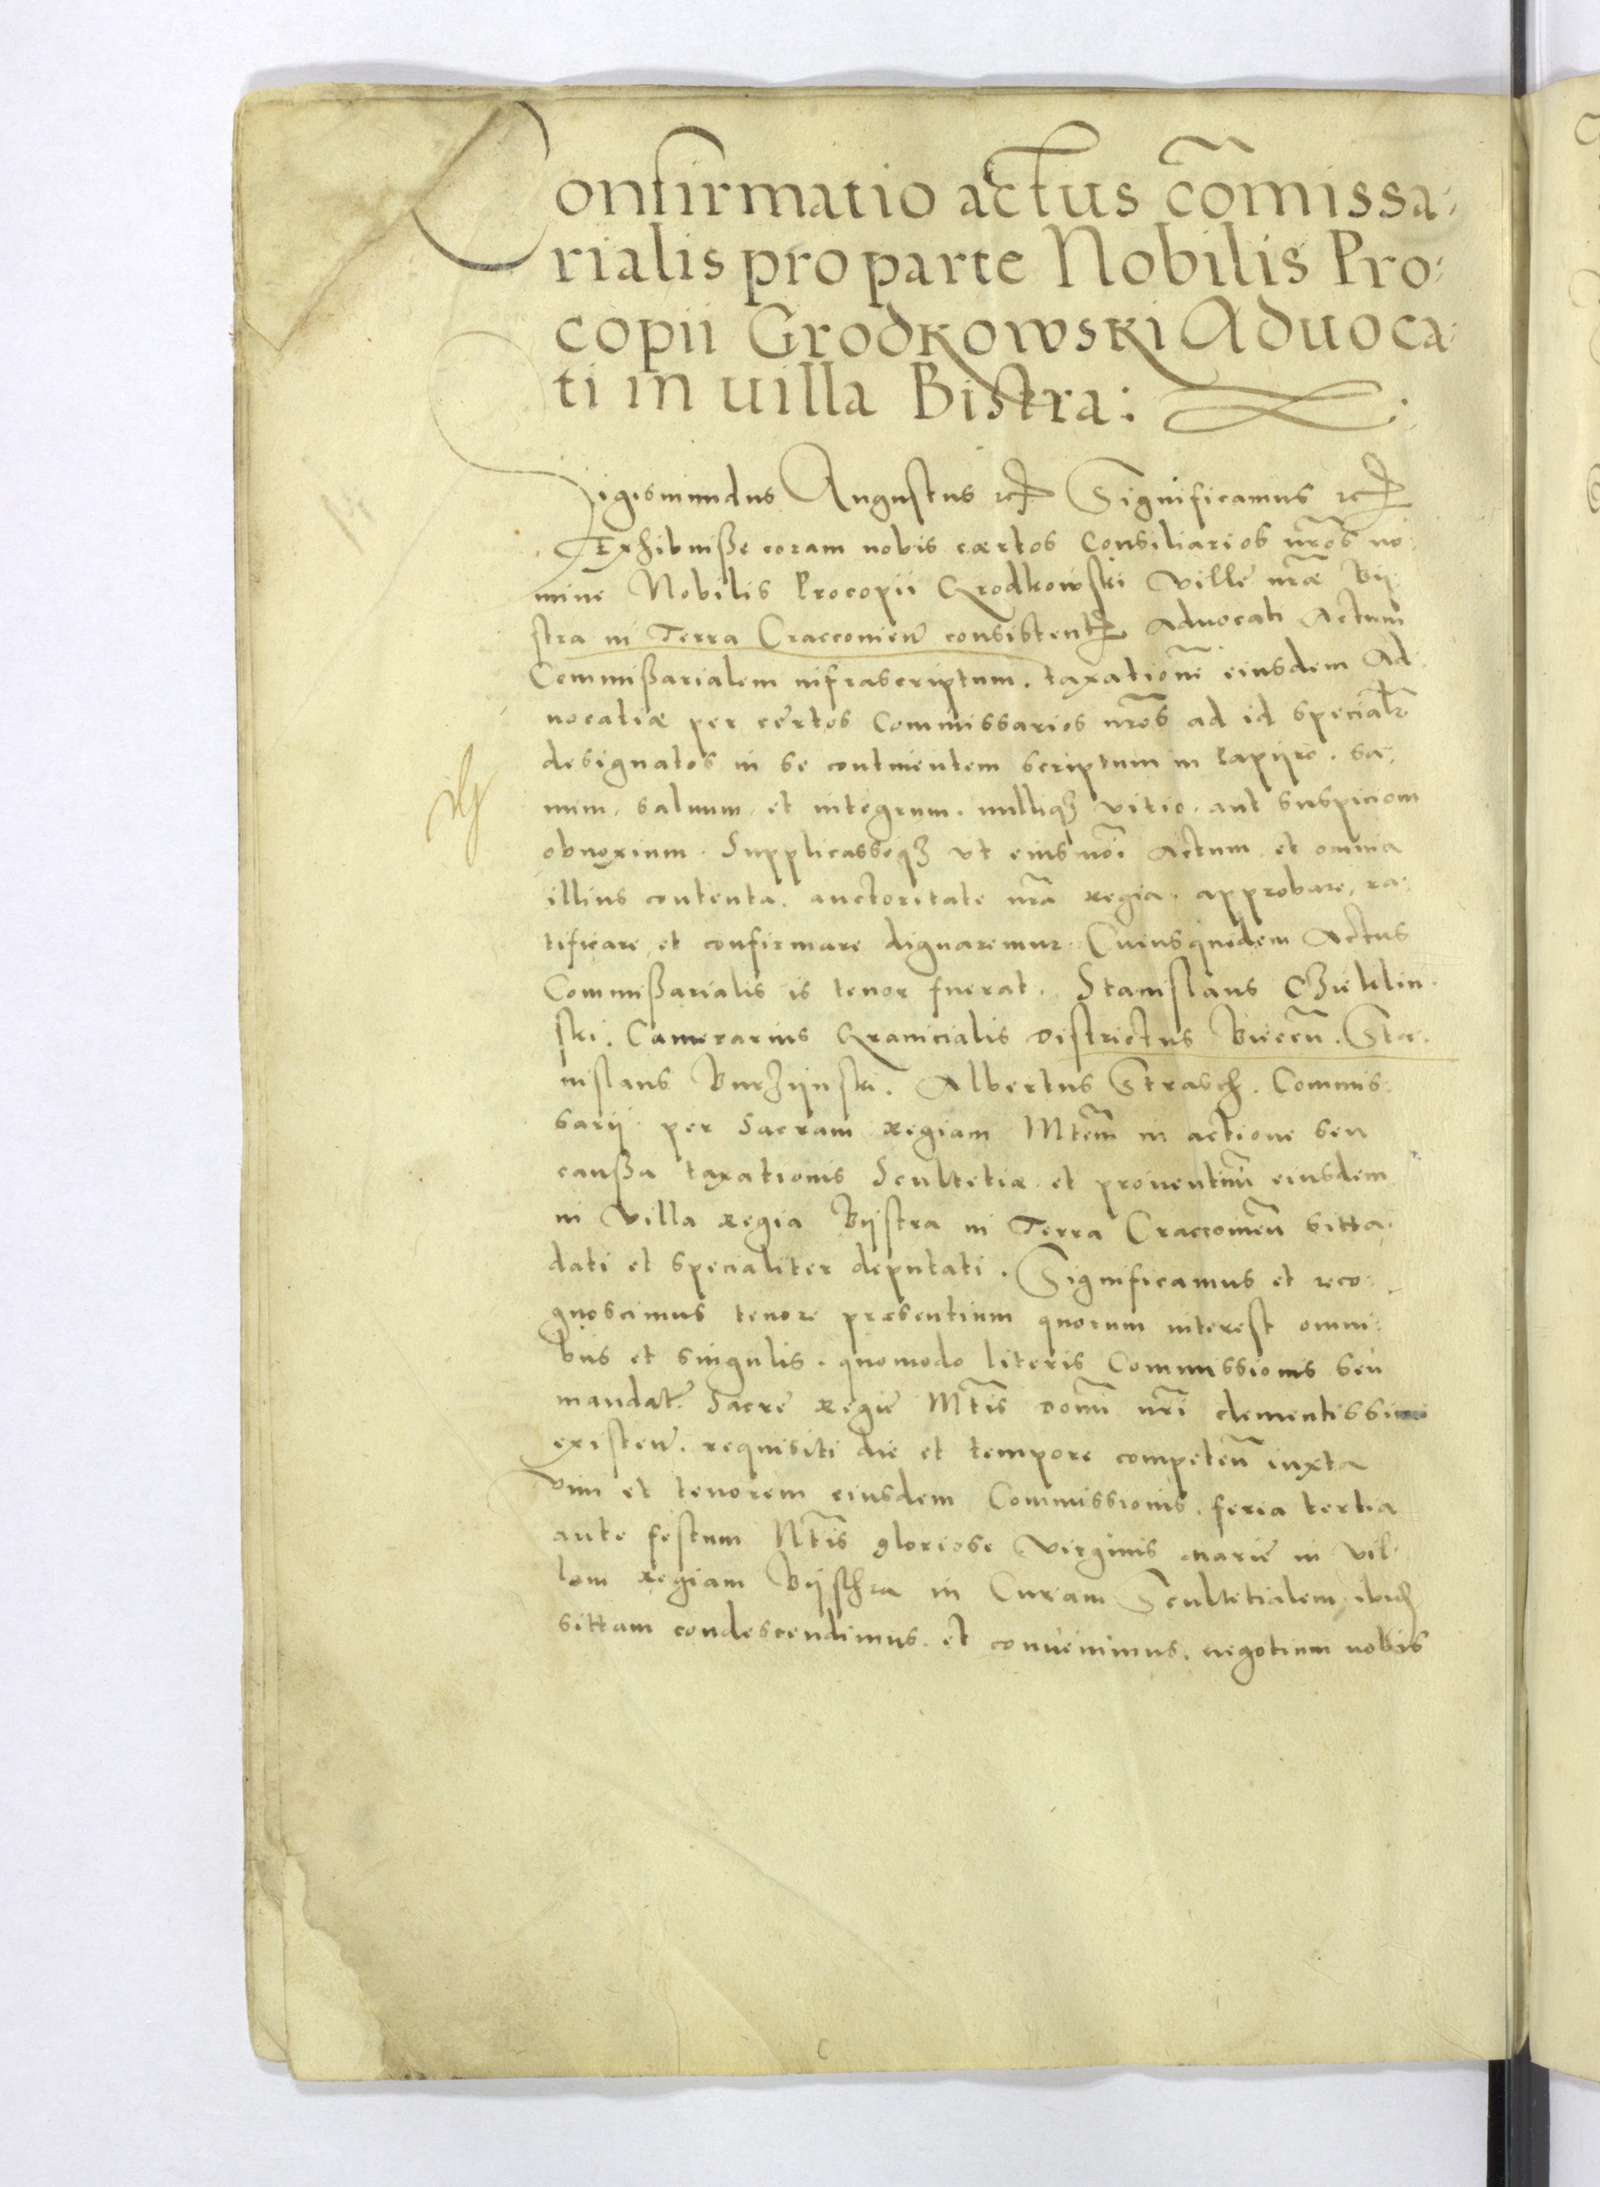 Confirmatio actus cōmissa:
rialis pro parte Nobilis Pro:
copii Grodkowski Aduoca:
ti in uilla Bistra:
Sigismundus Augustus etc Significamus etc
Exhibuisse coram nobis cærtos Consiliarios nr̃os no:
mine Nobilis Procopii Grodkowski Ville nr̃æ By:
stra in Terra Craccouien̄ consistent̃ Aduocati Actum
Commissarialem infrascriptum. taxationē eiusdem Ad:
uocatiæ per certos Commissarios nr̃os ad id specialr̃
designatos in se continentem scriptum in Papiro. sa:
num, saluum, et integrum. nulliq3 vitio. aut suspicioni
obnoxium. Supplicasseq3 vt eiusmōi Actum et omnia
illius contenta. auctoritate nr̃a Regia. approbare, ra:
tificare et confirmare dignaremur. Cuiusquidem Actus
Commissarialis is tenor fuerat. Stanislaus
ski. Camerarius Granicialis Districtus Biecen̄. Sta:
nislaus Burzynski. Albertus Strasch. Commis:
sarij per Sacram Regiam Mtem̄ in actione seu
caussa taxationis Scultetiæ et prouentuū eiusdem
in Villa Regia Bystra in Terra Craccouien̄ sitta
dati et specialiter deputati. Significamus et reco:
gnoscimus tenore præsentium quorum interest omni:
bus et singulis. quomodo literis Commissionis seu
mandat̃. Sacrę Regię Mtis̄ Domī nr̃i clementissimi
existen̄. requisiti die et tempore competen̄ iuxta
vim et tenorem eiusdem Commissionis. feria tertia
ante festum Ntis̄ gloriose Virginis Marię in Vil:
lam Regiam Bystra in Curiam Scultetialem ibid
sittam condescendimus. et conuenimus. negotium nobis